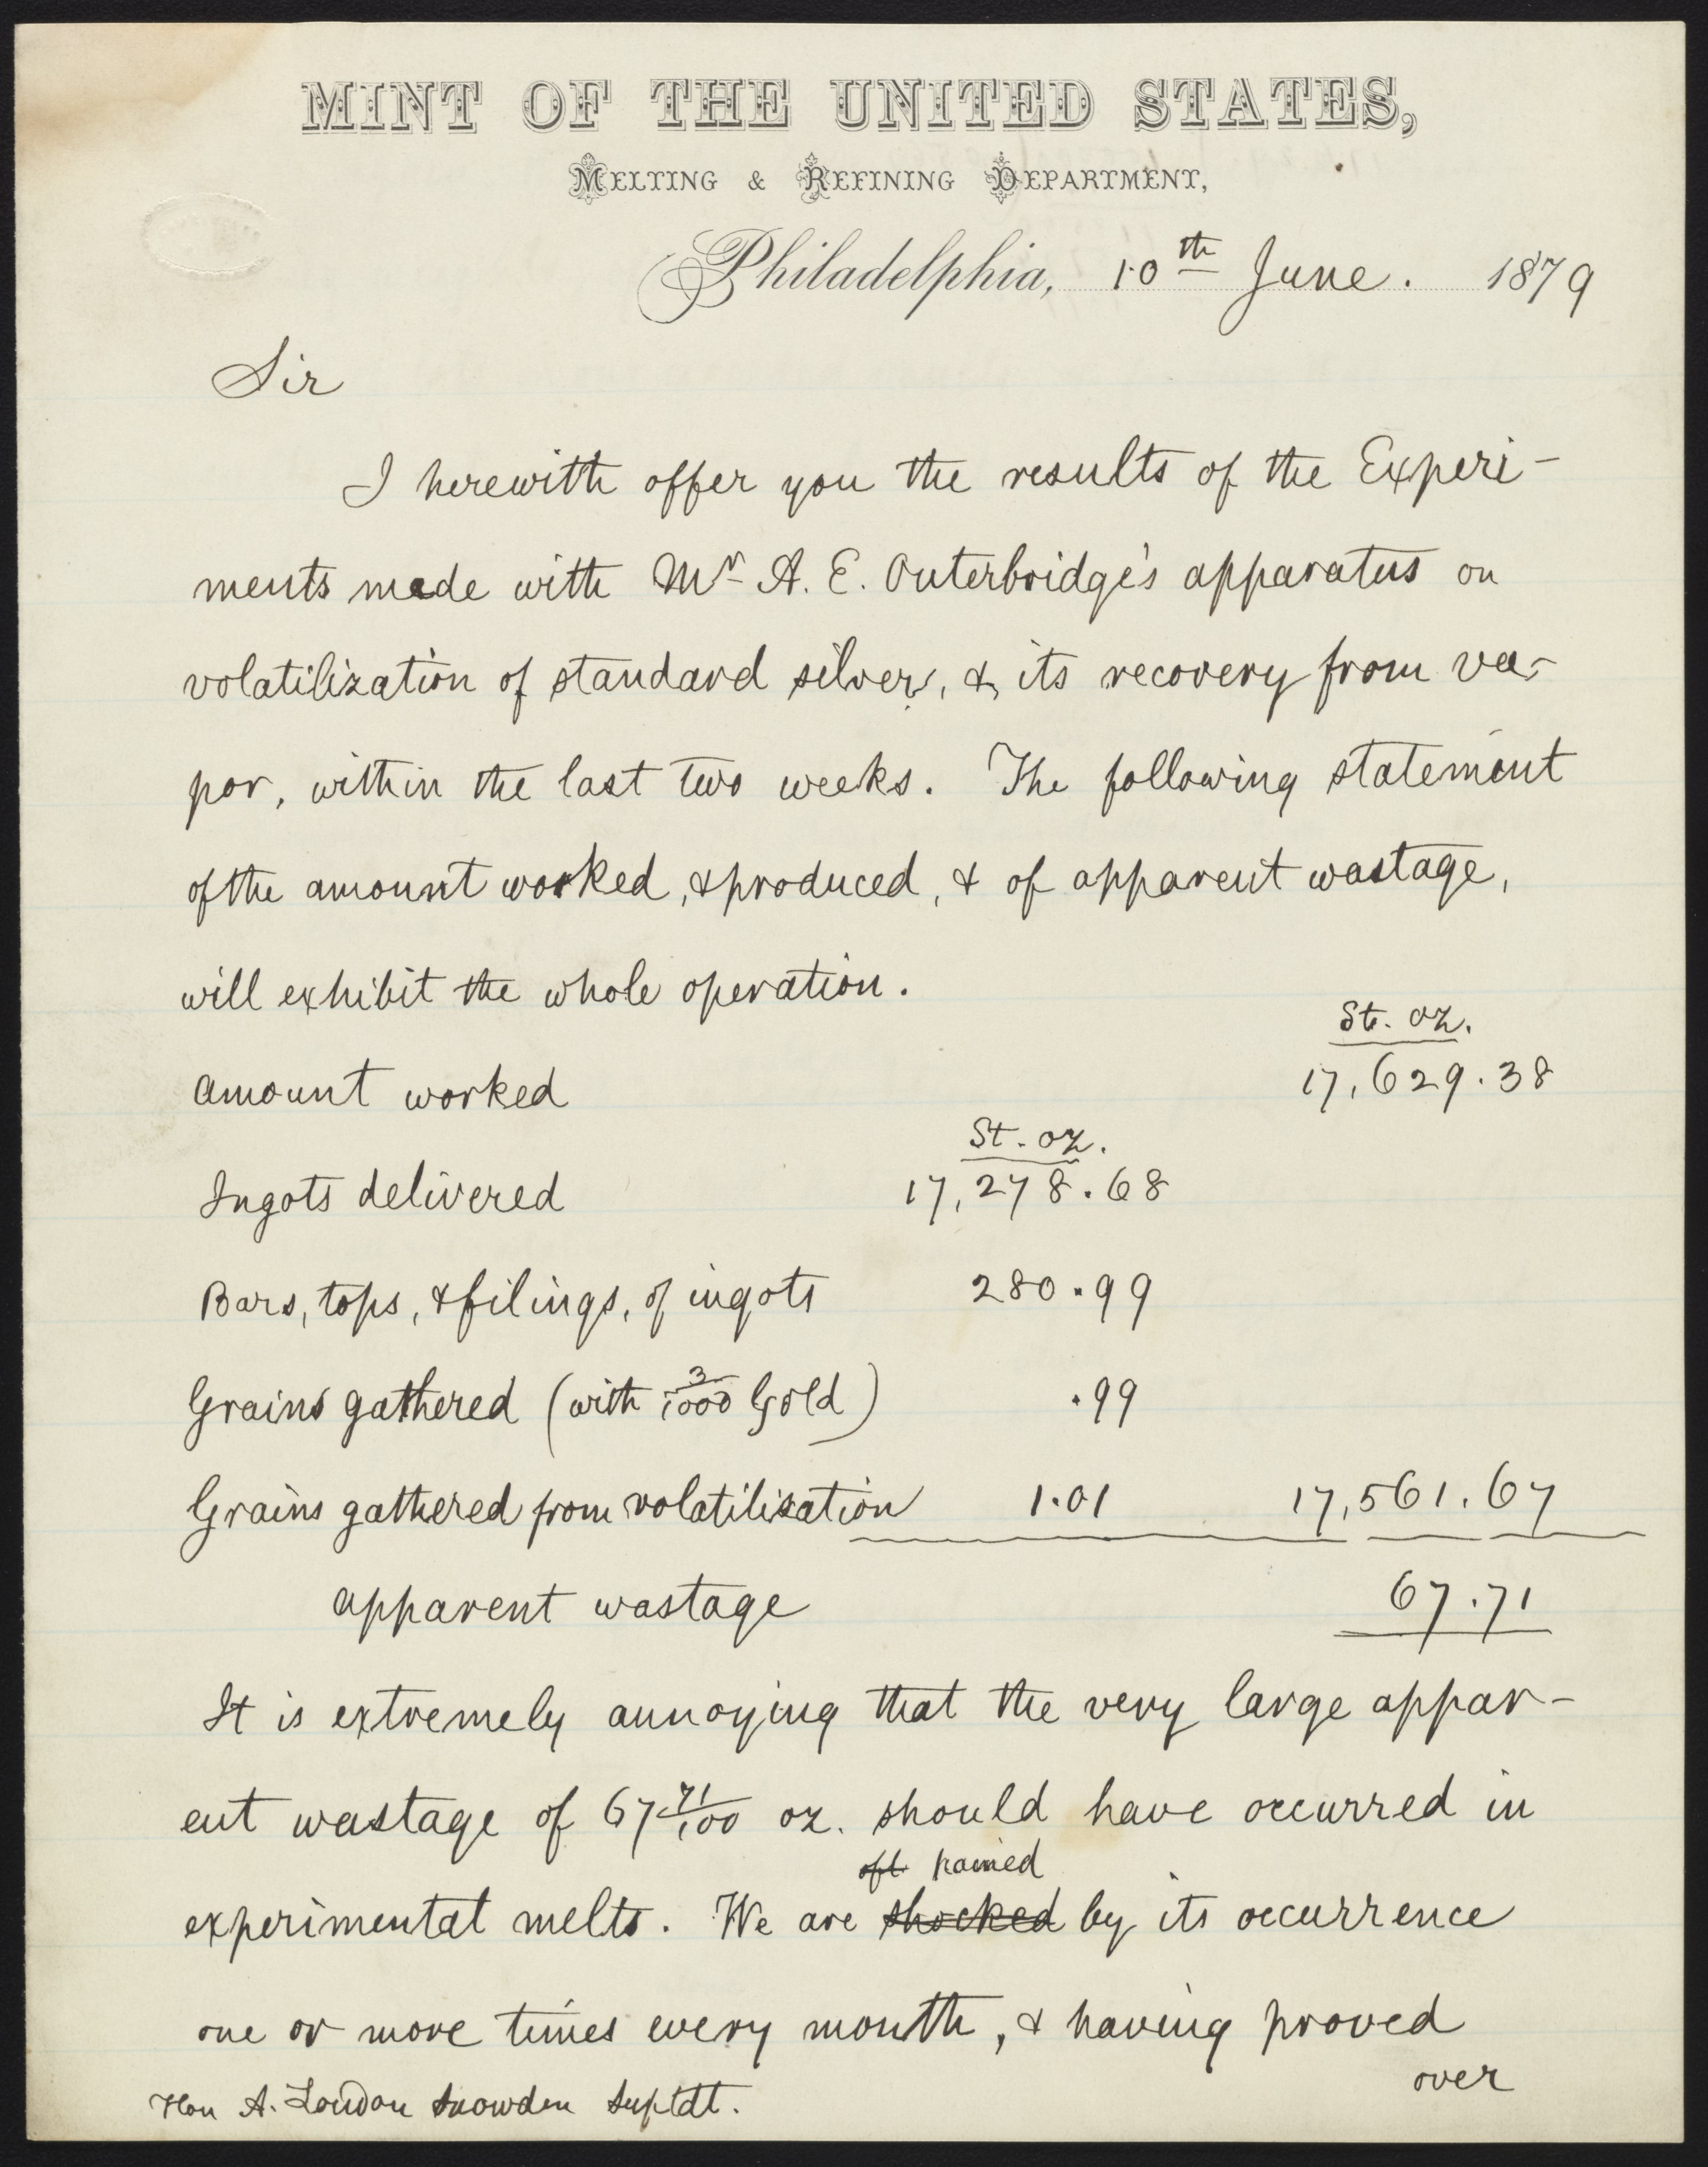 MINT OF THE UNITED STATES,
MELTING & REFINING DEPARTMENT,
Philadelphia, 10th June. 1879
Sir
I herewith offer you the results of the Experi-
ments made with Mr A. E. Outerbridge's apparatus on
volatilization of standard silver, & its recovery from va-
por, within the last two weeks. The following statement
of the amount worked, & produced, & of apparent wastage,
will exhibit the whole operation.
St. oz.
Amount worked 17,629.38
St. oz.
Ingots delivered 17,278.68
Bars, tops, & filings, of ingots 280.99
Grains gathered (with 3/1000 Gold) .99
Grains gathered from volatilization 1.01 17,561.67
apparent wastage 67.71
It is extremely annoying that the very large appar-
ent wastage of 67 71/100 oz. should have occurred in
oft pained
experimental melts. We are shocked by its occurrence
one or more times every month, & having proved
over
Hon A. Loudon Snowden Suptdt.